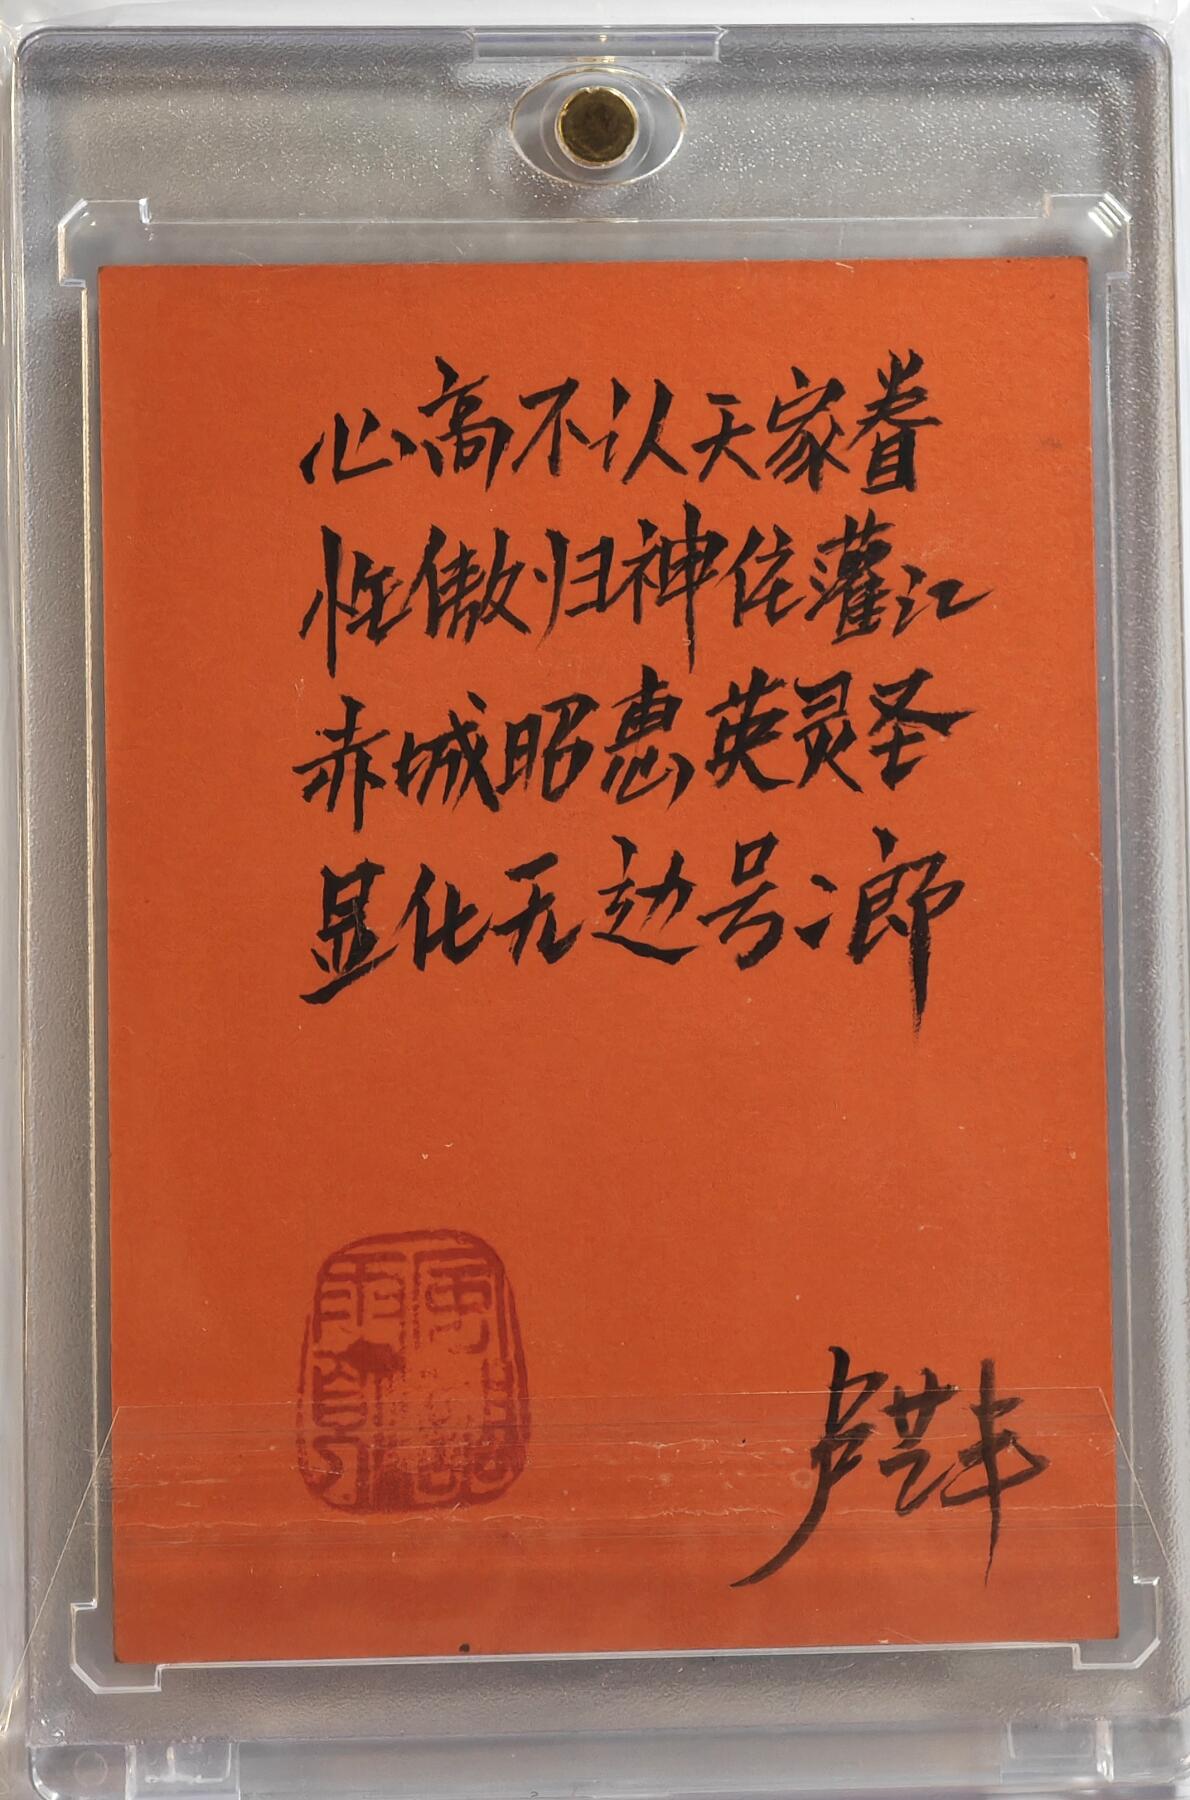 心高不认天家眷
性傲归神住灌江
赤城昭惠英灵圣
显化无边号二郎